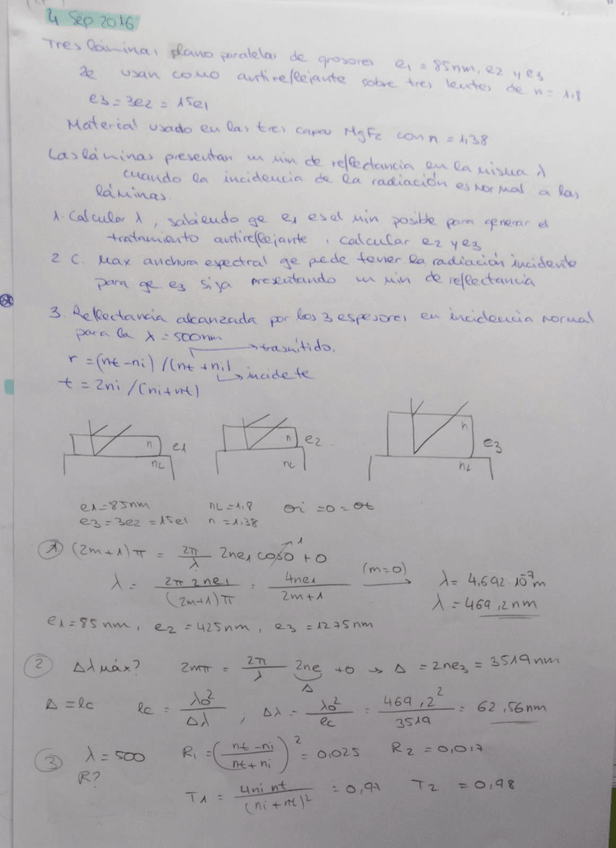 4 Sep 2016
Tres láminas plano paralelas de grosores e1 = 85nm, e2 y e3
se usan como antireflejante sobre tres lentes de n = 1,8
e3 = 3e2 = 15e1
Material usado en las tres capas MgF2 con n = 1,38
Las láminas presentan un min de reflectancia en la misma λ
cuando la incidencia de la radiación es normal a las
láminas
1. Calcular λ, sabiendo qe e1 es el min posible para generar el
tratamiento antireflejante, calcular e2 y e3
2 C. Max anchura espectral qe pede tener la radiación incidente
para qe e3 siga presentando un min de reflectancia
3. Reflectancia alcanzada por los 3 espesores en incidencia normal
para la λ = 500nm
r = (nt - ni) / (nt + ni) trasmitido.
t = 2ni / (ni + nt) incidete
n e1 n e2 n e3
nL nL nL
e1 = 85nm nL = 1,8 θi = 0 = θt
e3 = 3e2 = 15e1 n = 1,38
1 (2m+1)π = 2π/λ 2ne1 cos0 1 + 0
λ = 2π 2ne1/(2m+1)π = 4ne1/2m+1 (m=0) → λ = 4,692·10^-7 m
λ = 469,2nm
e1 = 85nm, e2 = 425nm, e3 = 1275nm
2 Δλ máx? 2mπ = 2π/λ 2ne + 0 → Δ = 2ne3 = 3519nm
Δ
Δ = lc lc = λ0²/Δλ, Δλ = λ0²/lc = 469,2²/3519 = 62,56nm
3 λ = 500 R1 = (nt - ni/nt + ni)² = 0,025 R2 = 0,017
R?
T1 = 4ni nt/(ni + nt)² = 0,97 T2 = 0,98